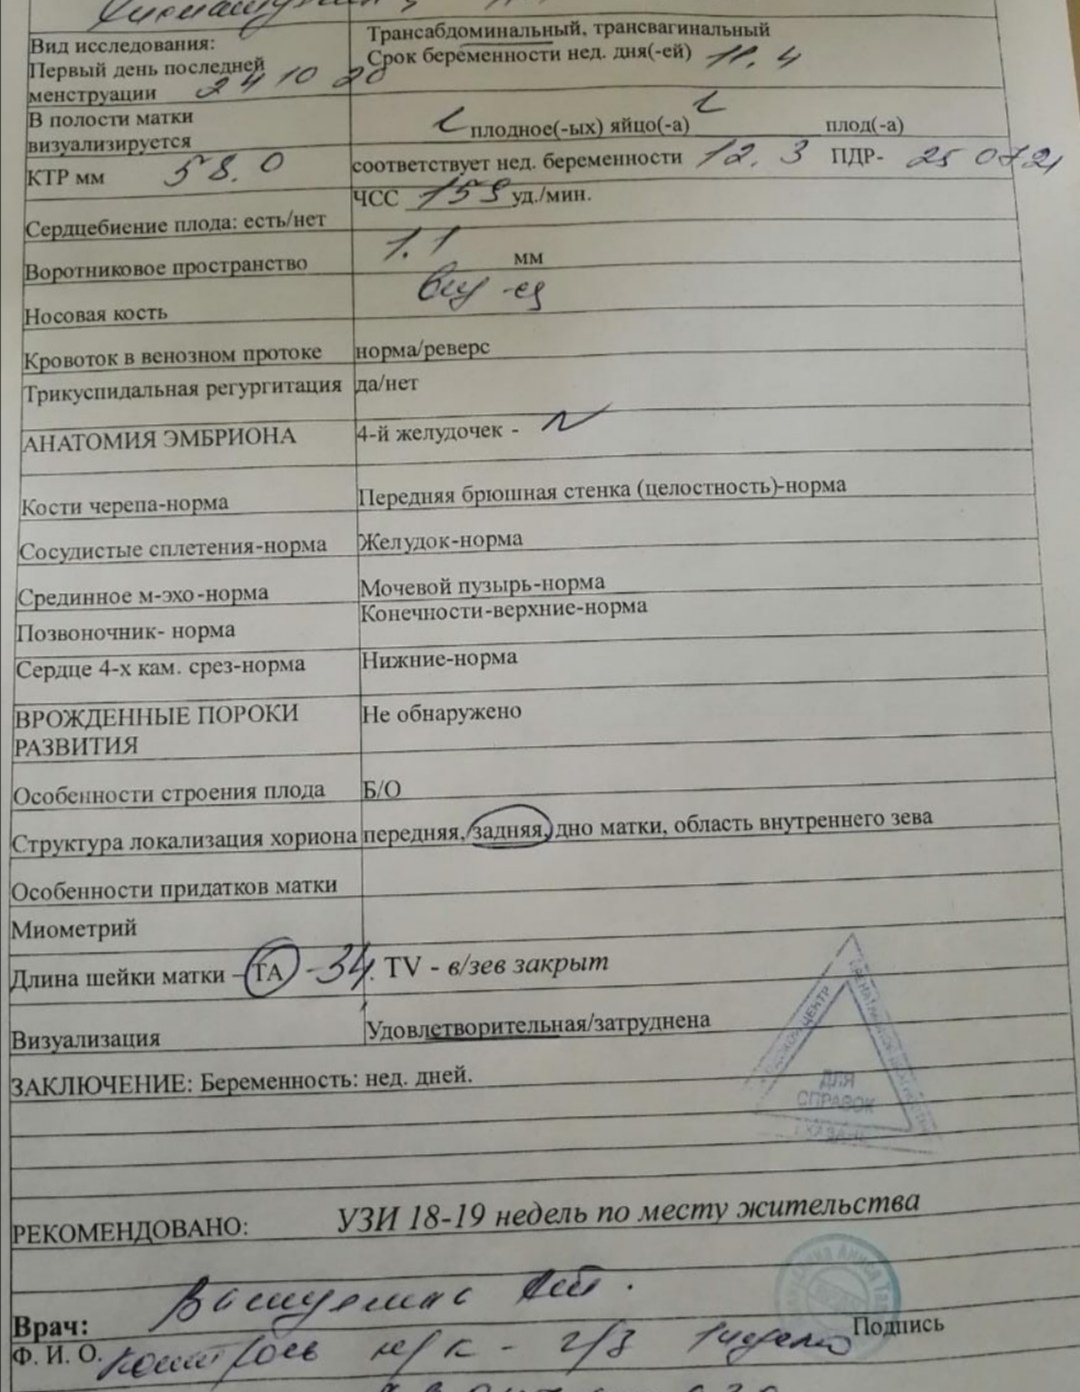 Вид исследования: Трансабдоминальный, трансвагинальный
Первый день последней менструации 24 10 20 Срок беременности нед. дня(-ей) 11.4
В полости матки визуализируется 1 плодное(-ых) яйцо(-а) 1 плод(-а)
КТР мм 58.0 соответствует нед. беременности 12.3 ПДР- 25 07 21
Сердцебиение плода: есть/нет ЧСС 159 уд./мин.
Воротниковое пространство 1.1 мм
Носовая кость виз-ся
Кровоток в венозном протоке норма/реверс
Трикуспидальная регургитация да/нет
АНАТОМИЯ ЭМБРИОНА 4-й желудочек - N
Кости черепа-норма Передняя брюшная стенка (целостность)-норма
Сосудистые сплетения-норма Желудок-норма
Срединное м-эхо-норма Мочевой пузырь-норма
Позвоночник- норма Конечности-верхние-норма
Сердце 4-х кам. срез-норма Нижние-норма
ВРОЖДЕННЫЕ ПОРОКИ Не обнаружено
РАЗВИТИЯ
Особенности строения плода Б/О
Структура локализация хориона передняя, задняя, дно матки, область внутреннего зева
Особенности придатков матки
Миометрий
Длина шейки матки – ТА - 34. TV - в/зев закрыт
Визуализация Удовлетворительная/затруднена
ЗАКЛЮЧЕНИЕ: Беременность: нед. дней.
ДЛЯ
СПРАВОК
РЕКОМЕНДОВАНО: УЗИ 18-19 недель по месту жительства
Врач:
Ф. И. О. Подпись
контроль ч/з